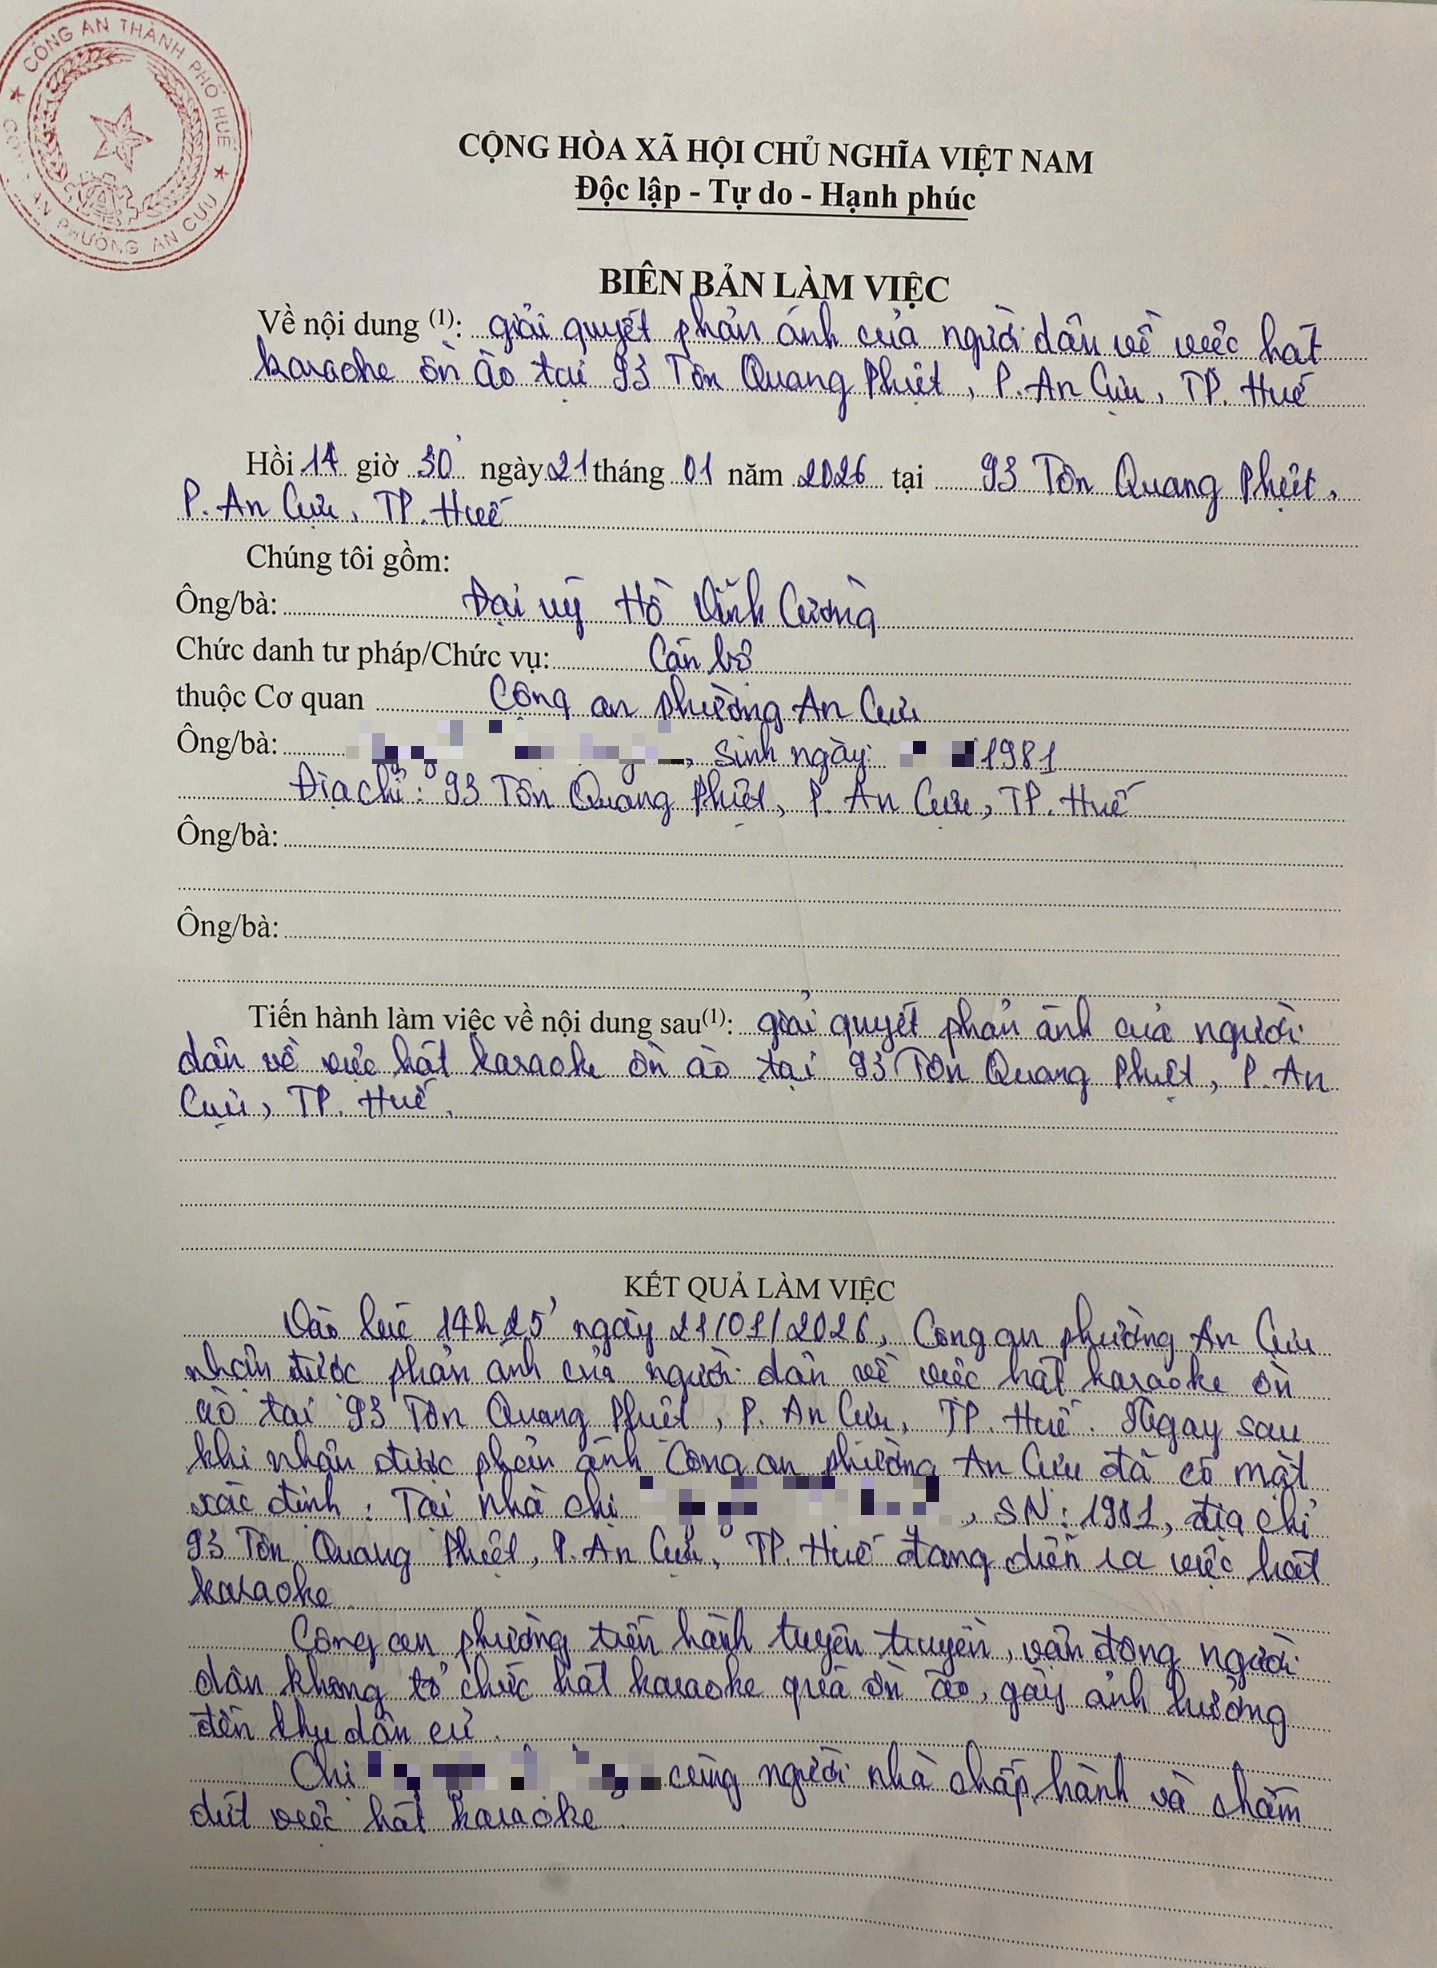 ★ CÔNG AN THÀNH PHỐ HUẾ ★
AN PHƯỜNG AN CỰU
CỘNG HÒA XÃ HỘI CHỦ NGHĨA VIỆT NAM
Độc lập - Tự do - Hạnh phúc
BIÊN BẢN LÀM VIỆC
Về nội dung (1): giải quyết phản ánh của người dân về việc hát
karaoke ồn ào tại 93 Tôn Quang Phiệt, P. An Cựu, TP. Huế
Hồi 14 giờ 30' ngày 21 tháng 01 năm 2026 tại 93 Tôn Quang Phiệt,
P. An Cựu, TP. Huế
Chúng tôi gồm:
Ông/bà: Đại uý Hồ Vĩnh Cường
Chức danh tư pháp/Chức vụ: Cán bộ
thuộc Cơ quan Công an phường An Cựu
Ông/bà: , sinh ngày: 1981
Địa chỉ: 93 Tôn Quang Phiệt, P. An Cựu, TP. Huế
Ông/bà:
Ông/bà:
Tiến hành làm việc về nội dung sau(1): giải quyết phản ánh của người
dân về việc hát karaoke ồn ào tại 93 Tôn Quang Phiệt, P. An
Cựu, TP. Huế.
KẾT QUẢ LÀM VIỆC
Vào lúc 14h25' ngày 21/01/2026, Công an phường An Cựu
nhận được phản ánh của người dân về việc hát karaoke ồn
ào tại 93 Tôn Quang Phiệt, P. An Cựu, TP. Huế. Ngay sau
khi nhận được phản ánh Công an phường An Cựu đã có mặt
xác định: Tại nhà chị , SN: 1981, địa chỉ
93 Tôn Quang Phiệt, P. An Cựu, TP. Huế đang diễn ra việc hát
karaoke.
Công an phường tiến hành tuyên truyền, vận động người
dân không tổ chức hát karaoke quá ồn ào, gây ảnh hưởng
đến khu dân cư.
Chị cùng người nhà chấp hành và chấm
dứt việc hát karaoke.